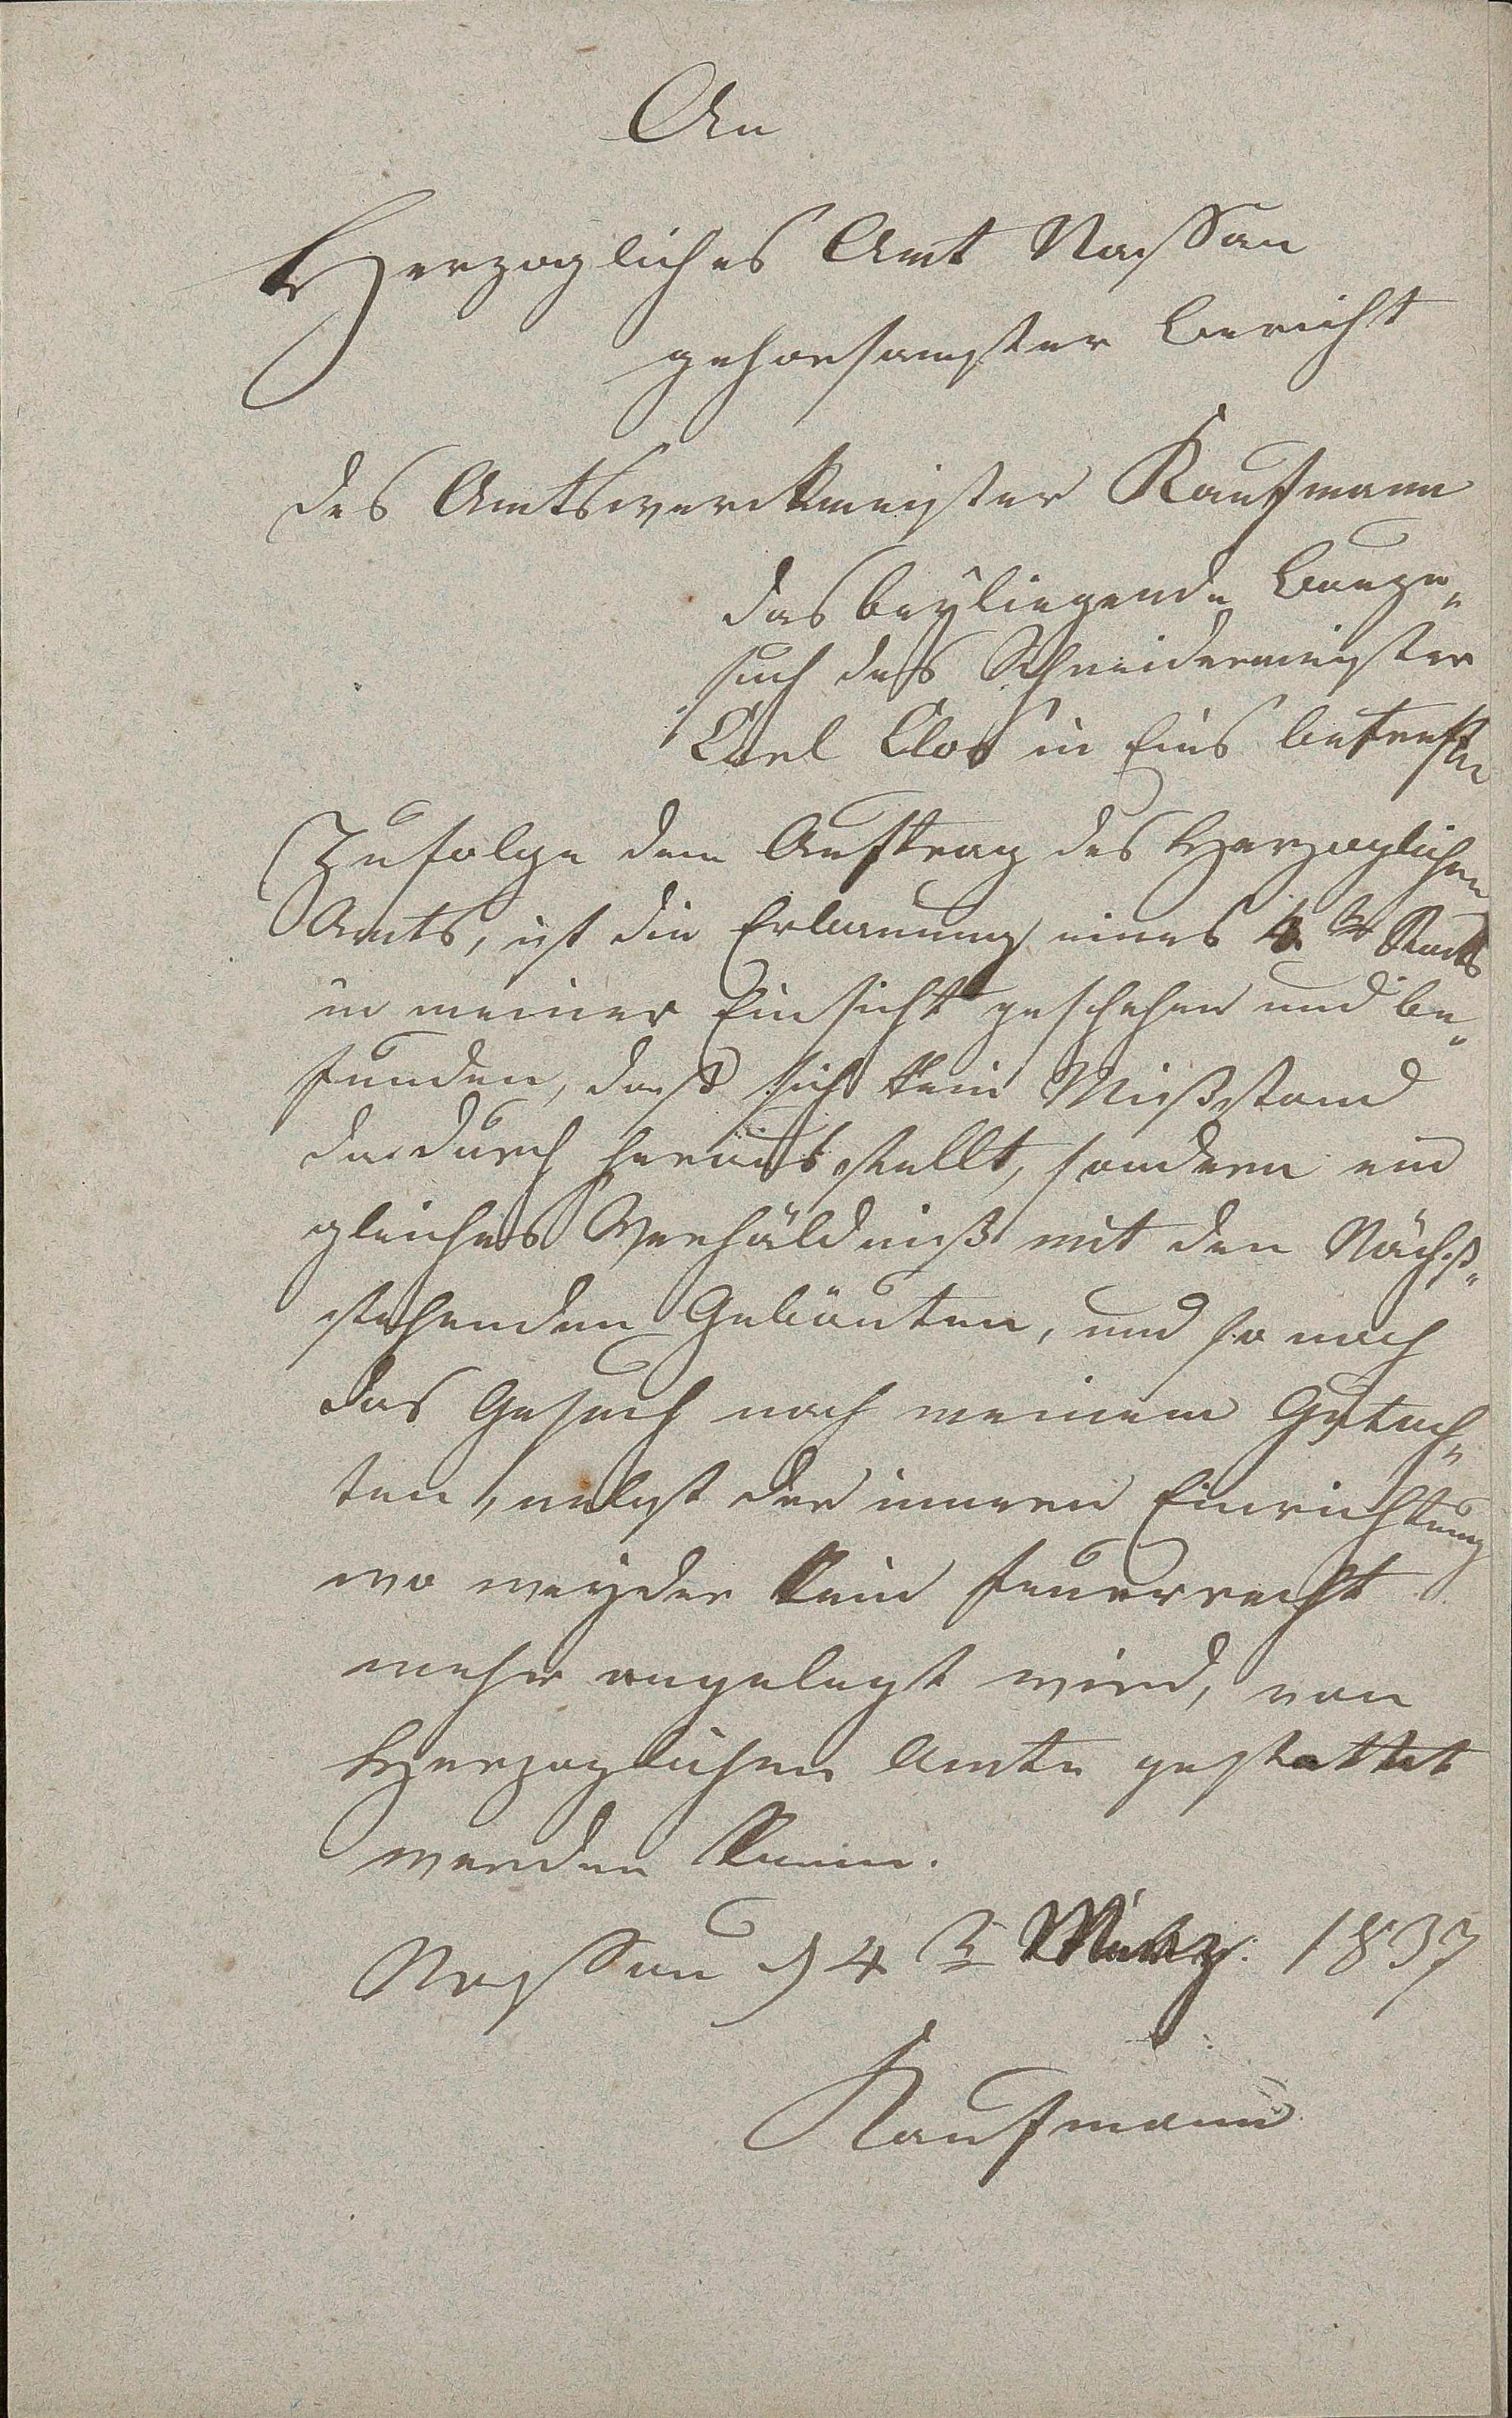 An
Herzogliches Amt Nassau
gehorsamster Bericht
des Amtswerckmeister Kaufmann
das beÿliegende Bauge„
such des Schneidermeister
Carl Clos in Ems betreffen
Zufolge dem Auftrag des Herzoglichen
Amts, ist die Erbauung eines 4ten Stocks
in meiner Einsicht geschehen und be„
funden, daß sich kein Mißstand
dadurch herausstellt, sondern ein
gleiches Verhäldniß mit den Nächst„
stehenden Gebäuten, und so nach
das Gesuch nach meinem Gutach„
ten, nebst der innern Einrichtung
wo kein Feuerrecht
mehr angelegt wird, von
Herzoglichen Amte gestattet
werden kann.
Nassau d 4t März 1837
Kaufmann